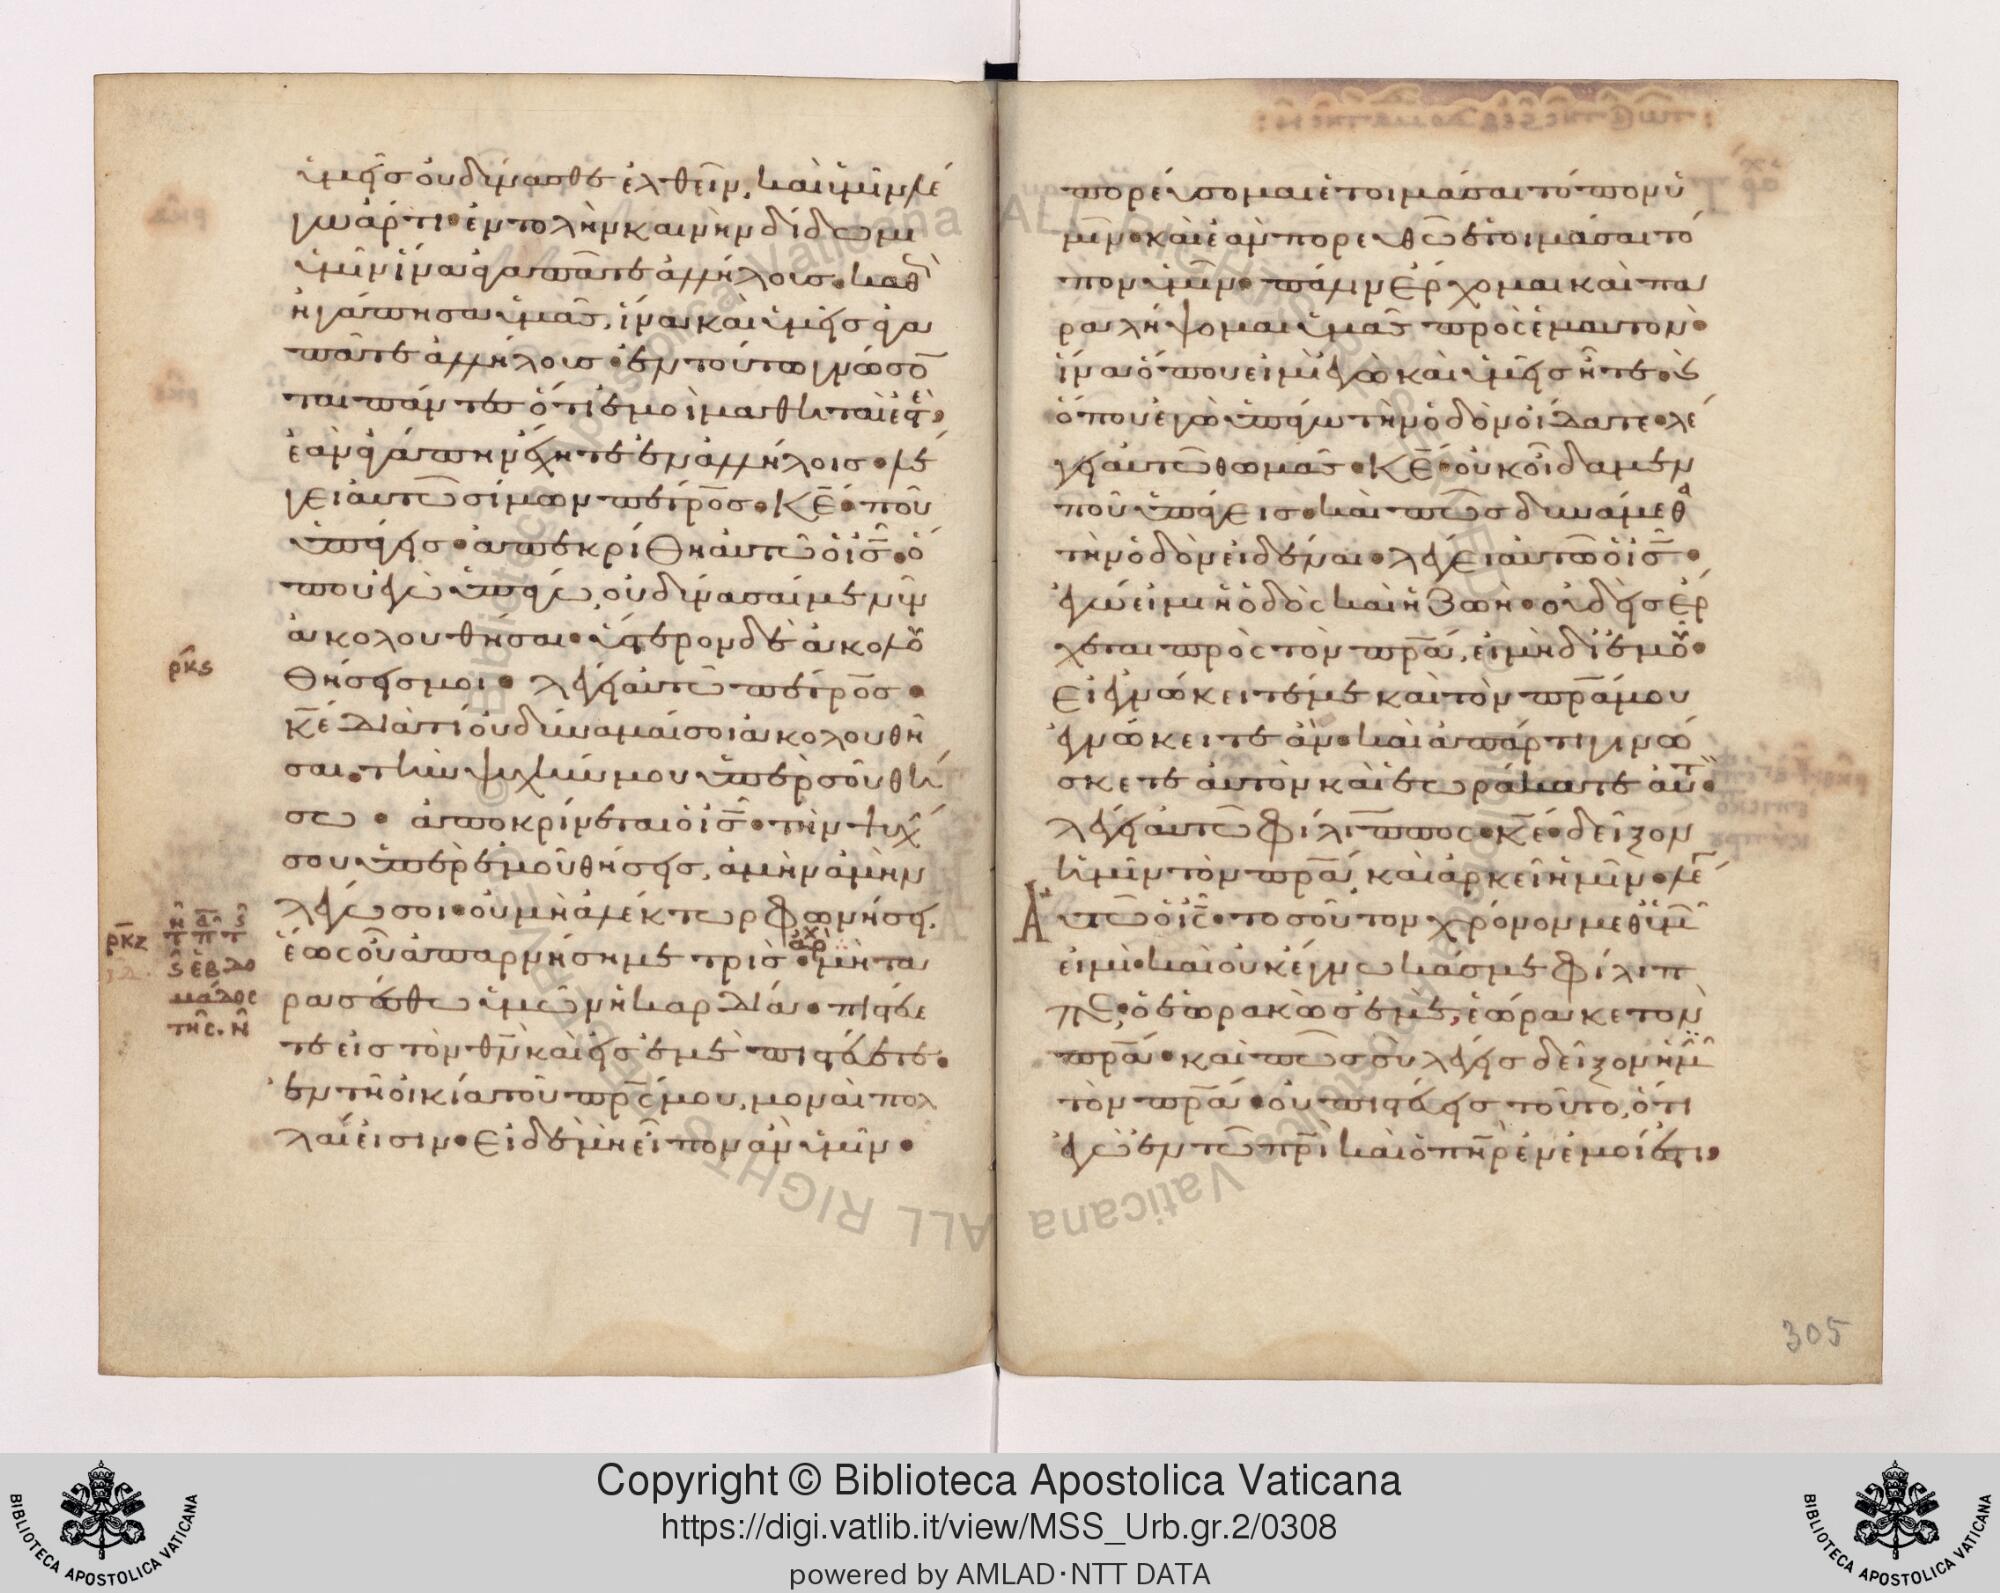 ὑμεῖς οὐ δύνασθε ἐλθεῖν, καὶ ὑμῖν λέ
γω ἄρτι· ἐντολὴν καινὴν δίδωμι
ὑμῖν ἵνα ἀγαπᾶτε ἀλλήλους· καθ
ἠγάπησα ὑμᾶς, ἵνα καὶ ὑμεῖς ἀγα
πᾶτε ἀλλήλους· ἐν τούτω γνώσο
ται πάντες ὅτι ἐμοὶ μαθηταὶ ἐστὲ·
ἐὰν ἀγάπην ἔχητε ἐν ἀλλήλοις· λέ
γει αὐτῶ σίμων πέτρος· κε· ποῦ
ὑπάγεις· ἀπεκρίθη αὐτῶ ὁ ις· ὅ
που ἐγὼ ὑπάγω, οὐ δύνασαί με νῦν
ἀκολουθῆσαι· ὕστερον δὲ ἀκολου
θήσεις μοι· λέγει αὐτῶ πέτρος·
κε διατί οὐ δύναμαί σοι ἀκολουθῆ
σαι· τὴν ψυχήν μου ὑπὲρ σοῦ θή
σω· ἀποκρίνεται ὁ ις· τὴν ψυχ
σου ὑπὲρ ἐμοῦ θήσεις, ἀμὴν ἀμὴν
λέγω σοι· οὐ μὴ ἀλέκτωρ φωνήσει,
ἕως οὗ ἀπαρνήση με τρίς· μὴ τα
ρασσέσθω ὑμῶν ἡ καρδία· πιστεύε
τε εἰς τὸν θν καὶ εἰς ἐμὲ πιστεύετε·
ἐν τῆ οἰκία τοῦ πρς μου, μοναὶ πολ
λαί εἰσιν· εἰ δὲ μὴ εἶπον ἂν ὑμῖν·
ρκς
ρκζ
ἑβδο
μάδος
τῆς· ν
πορεύσομαι ἑτοιμάσαι τόπον ὑ
μῖν· καὶ ἐὰν πορευθῶ ἑτοιμάσαι τό
πον ὑμῖν· πάλιν ἔρχομαι καὶ πα
ραλήψομαι ὑμᾶς πρὸς ἐμαυτὸν·
ἵνα ὅπου εἰμὶ ἐγὼ καὶ ὑμεῖς ἦτε· καὶ
ὅπου ἐγὼ ὑπάγω τὴν ὁδὸν οἴδατε· λέ
γει αὐτῶ θωμᾶς· κε· οὐκ οἴδαμεν
ποῦ ὑπάγεις· καὶ πῶς δυνάμεθα
τὴν ὁδὸν εἰδέναι· λέγει αὐτῶ ὁ ις·
ἐγώ εἰμι ἡ ὁδὸς καὶ ἡ ζωὴ· οὐδεὶς ἔρ
χεται πρὸς τὸν πρα, εἰ μὴ δι ἐμοῦ·
εἰ ἐγνώκειτέ με καὶ τὸν πρα μου
ἐγνώκειτε ἂν· καὶ ἀπάρτι γινώ
σκετε αὐτὸν καὶ ἑωράκατε αὐτον·
λέγει αὐτῶ φίλιππος· κε· δεῖξον
ἡμῖν τὸν πρα, καὶ ἀρκεῖ ἡμῖν· λέγει
Αὐτῶ ὁ ις· τοσοῦτον χρόνον μεθ ὑμ
εἰμὶ· καὶ οὐκ ἔγνωκάς με φίλιπ
πε, ὁ ἑωρακὼς ἐμὲ, ἑώρακε τὸν
πρα· καὶ πῶς σὺ λέγεις δεῖξον ἡμ
τὸν πρα· οὐ πιστεύεις τοῦτο, ὅτι
ἐγὼ ἐν τῶ πρὶ καὶ ὁ πηρ ἐν ἐμοί ἐστι·
305
Copyright © Biblioteca Apostolica Vaticana
https://digi.vatlib.it/view/MSS_Urb.gr.2/0308
powered by AMLAD·NTT DATA
BIBLIOTECA APOSTOLICA VATICANA
BIBLIOTECA APOSTOLICA VATICANA